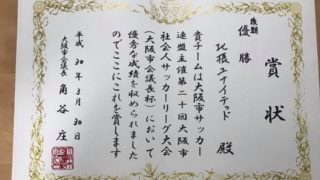 賞状
優勝
ユナイテッド 殿
貴チームは大阪市サッカー
連盟主催第二十回大阪市
社会人サッカーリーグ大会
(大阪市会議長杯)において
優秀な成績を収められました
のでここにこれを賞します
平成30年3月30日
大阪市会議長 角谷 庄